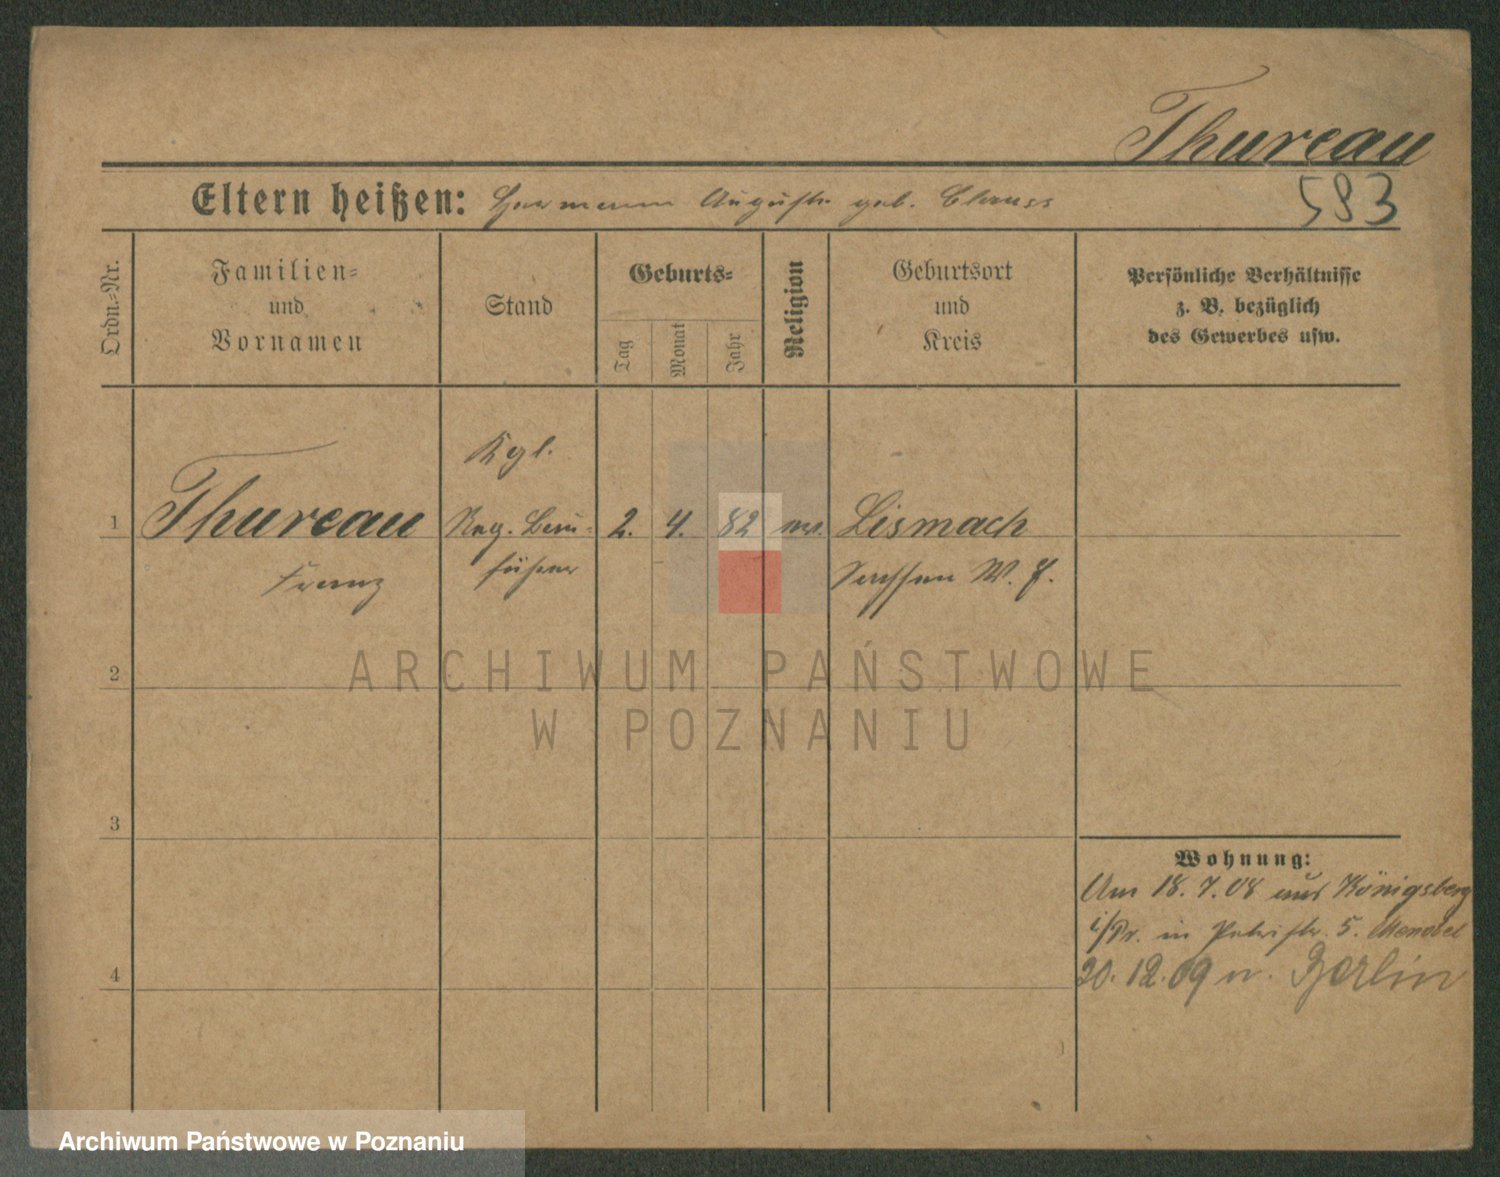 Thureau
583
Eltern heißen: Hermann Auguste geb. Clauss
Ordn.-Nr.
Familien- und Vornamen
Stand
Geburts-
Tag
Monat
Jahr
Religion
Geburtsort und Kreis
Persönliche Verhältnisse
z. B. bezüglich
des Gewerbes usw.
Kgl.
1 Thureau Reg. Bau- 2. 4. 82 ev. Lismach
Franz führer Sachsen W. E.
2
3
4
Wohnung:
Am 18.7.08 aus Königsberg
i/Pr. in Petristr. 5.
20.12.09 n. Berlin
ARCHIWUM PAŃSTWOWE
W POZNANIU
Archiwum Państwowe w Poznaniu